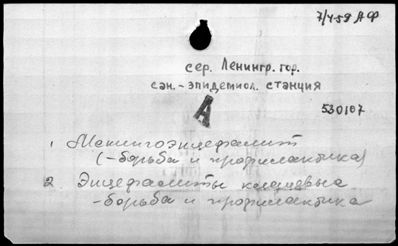 7/4-59 АФ
сер. Ленингр. гор.
сан.-эпидемиол. станция
А
530107
1. Менингоэнцефалит
(-борьба и профилактика)
2 Энцефалиты клещевые
-борьба и профилактика